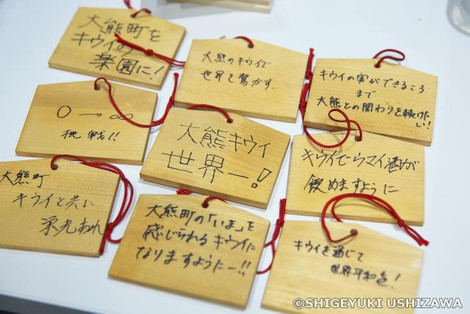 大熊町を
キウイの
楽園に！
大熊のキウイで
世界を驚かす。
キウイの実ができるころ
まで
大熊との関わりを続けたい！
0→∞
挑戦!!
大熊キウイ
世界一！
キウイでウマイ酒が
飲めますように
大熊町
キウイと共に
栄光あれ
大熊町の「いま」を
感じられるキウイに
なりますようにー!!
キウイを通じて
世界平和を！
©SHIGEYUKI USHIZAWA